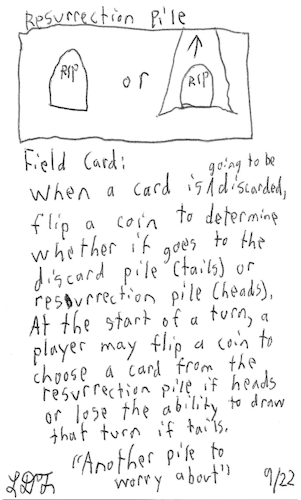 Resurrection Pile
RIP or RIP
Field Card:
When a card is going to be discarded,
flip a coin to determine
whether it goes to the
discard pile (tails) or
resurrection pile (heads).
At the start of a turn, a
player may flip a coin to
choose a card from the
resurrection pile if heads
or lose the ability to draw
that turn if tails.
"Another pile to
worry about"
9/22